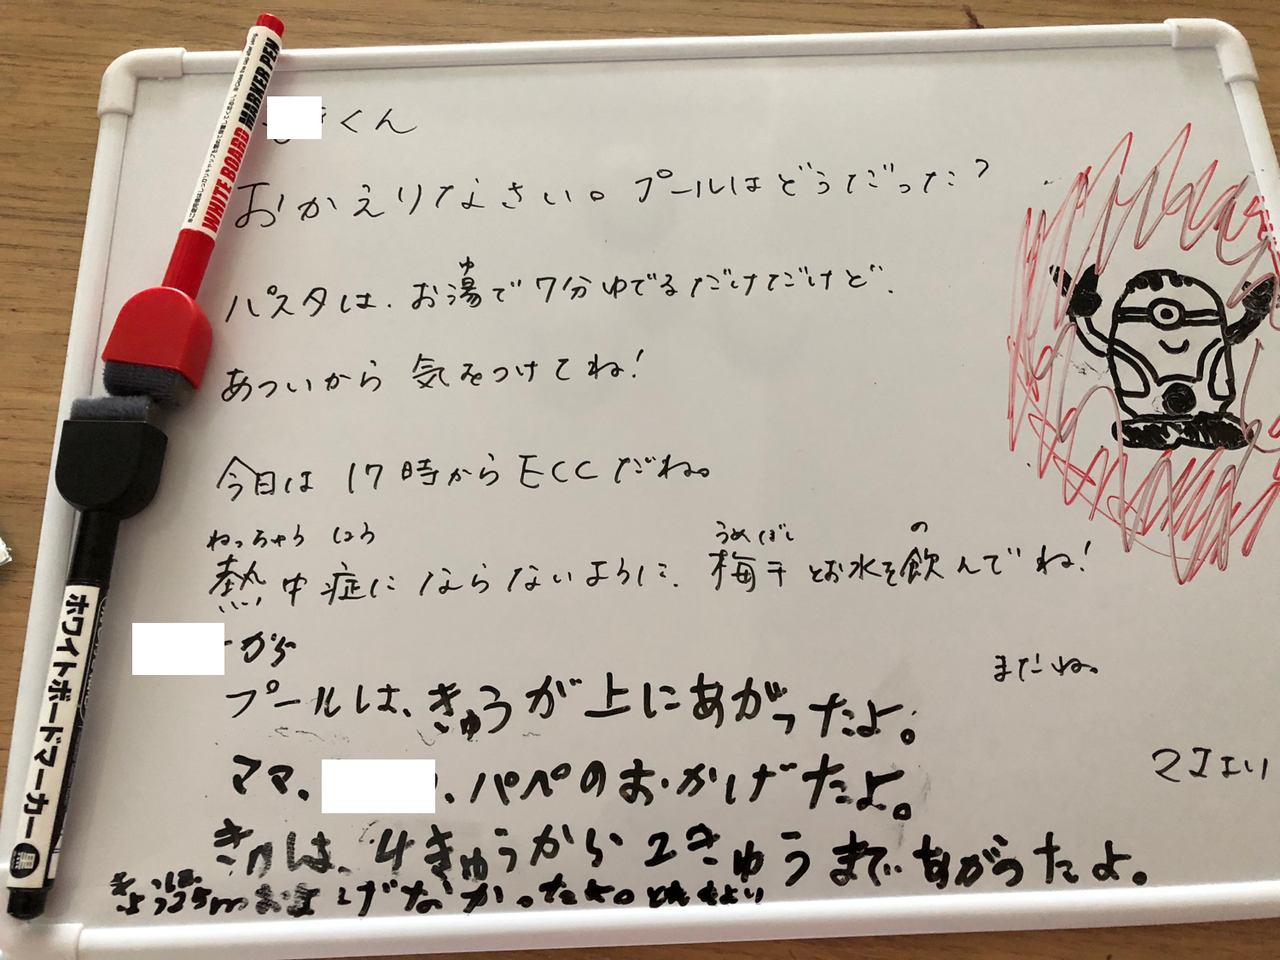 くん
おかえりなさい。プールはどうだった?
パスタは、お湯で7分ゆでるだけだけど、
ゆ
あついから 気をつけてね!
今日は 17時からECCだね。
ねっちゅうしょう
うめぼし
の
熱中症にならないように、梅干とお水を飲んでね!
またね。
ママより
から
プールは、きゅうが上にあがったよ。
ママ、
、パパのおかげだよ。
きゅうは、4きゅうから2きゅうまであがったよ。
きょうは25mおよげなかったよ。
WHITE BOARD MARKER PEN
ホワイトボードマーカー 黒